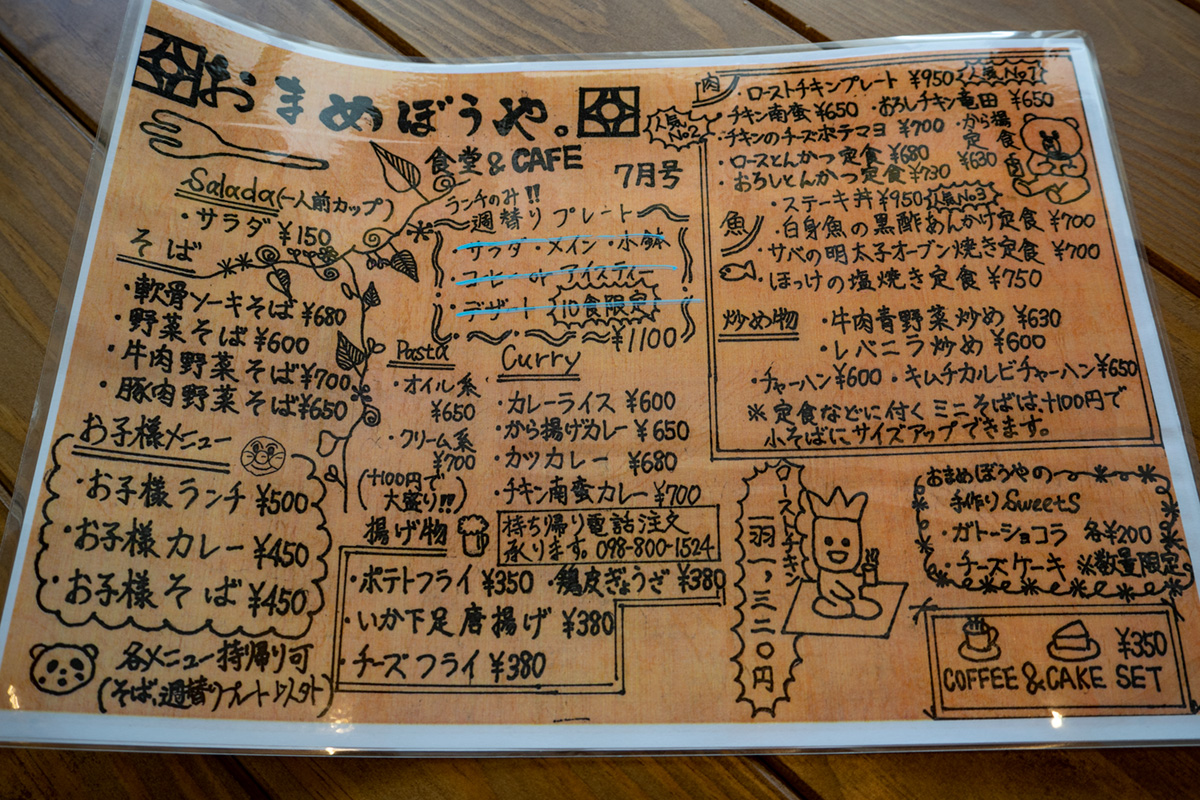 おまめぼうや。
食堂&CAFE
7月号
Salada(一人前カップ)
・サラダ ¥150
そば
・軟骨ソーキそば ¥680
・野菜そば ¥600
・牛肉野菜そば ¥700
・豚肉野菜そば ¥650
お子様メニュー
・お子様ランチ ¥500
・お子様カレー ¥450
・お子様そば ¥450
各メニュー持帰り可
(そば、週替りプレート以外)
ランチのみ!!
週替りプレート
・サラダ・メイン・小鉢
・コーヒー or アイスティー
・デザート 10食限定
¥1100
Pasta
・オイル系
¥650
・クリーム系
¥700
(+100円で
大盛り!!)
Curry
・カレーライス ¥600
・から揚げカレー ¥650
・カツカレー ¥680
・チキン南蛮カレー ¥700
持ち帰り電話注文
承ります。098-800-1524
揚げ物
・ポテトフライ ¥350 ・鶏皮ぎょうざ ¥380
・いか下足唐揚げ ¥380
・チーズフライ ¥380
肉
・ローストチキンプレート ¥950 人気No1
人気No2
・チキン南蛮 ¥650 ・おろしチキン竜田 ¥650
・チキンのチーズポテマヨ ¥700
・から揚定食 ¥630
・ロースとんかつ定食 ¥680
・おろしとんかつ定食 ¥730
・ステーキ丼 ¥950 人気No3
魚
・白身魚の黒酢あんかけ定食 ¥700
・サバの明太子オーブン焼き定食 ¥700
・ほっけの塩焼き定食 ¥750
炒め物
・牛肉青野菜炒め ¥630
・レバニラ炒め ¥600
・チャーハン ¥600 ・キムチカルビチャーハン ¥650
※定食などに付くミニそばは、+100円で
小そばにサイズアップできます。
ローストチキン
一羽一、三二〇円
肉
おまめぼうやの
手作りSweets
・ガトーショコラ 各¥200
・チーズケーキ ※数量限定
¥350
COFFEE & CAKE SET